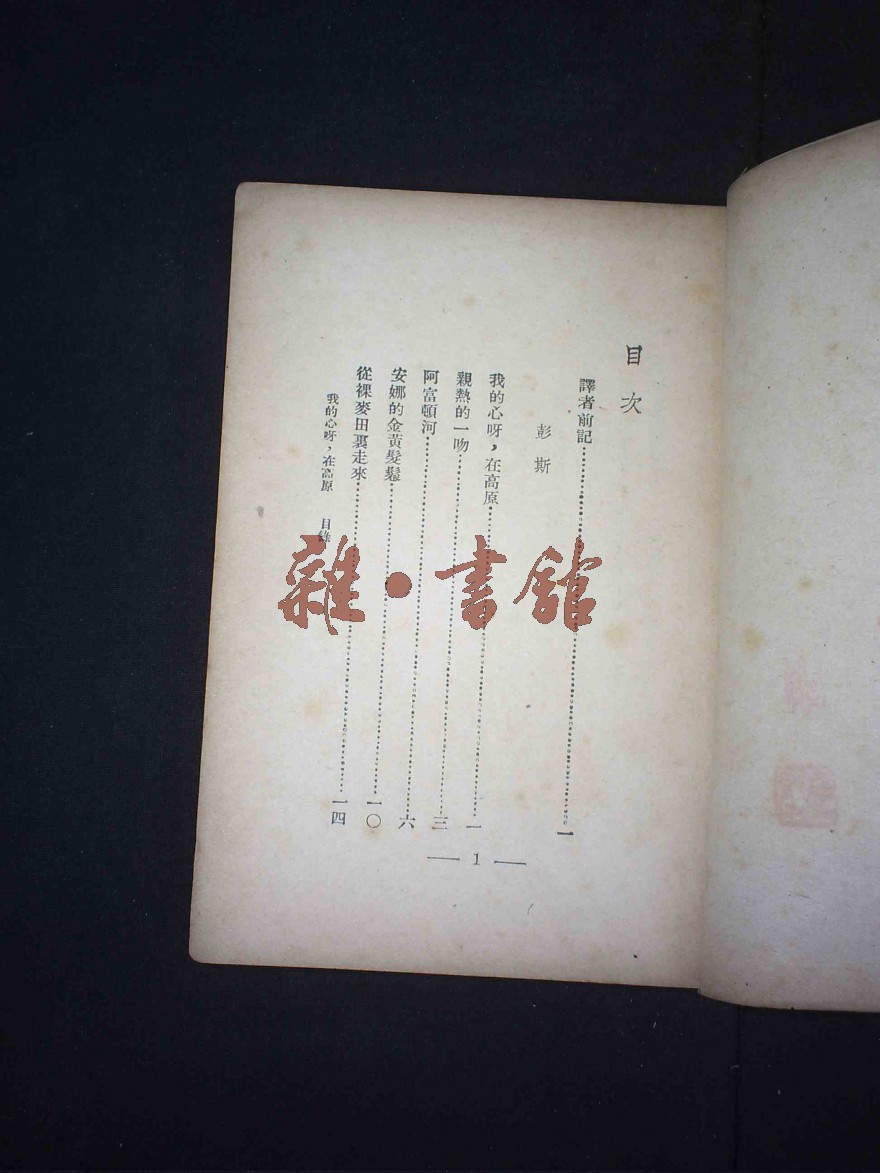 目次
譯者前記……一
彭斯
我的心呀，在高原……一
親熱的一吻……三
阿富頓河……六
安娜的金黃髮鬆……一〇
從裸麥田裏走來……一四
我的心呀，在高原 目錄
— 1 —
雜·書館